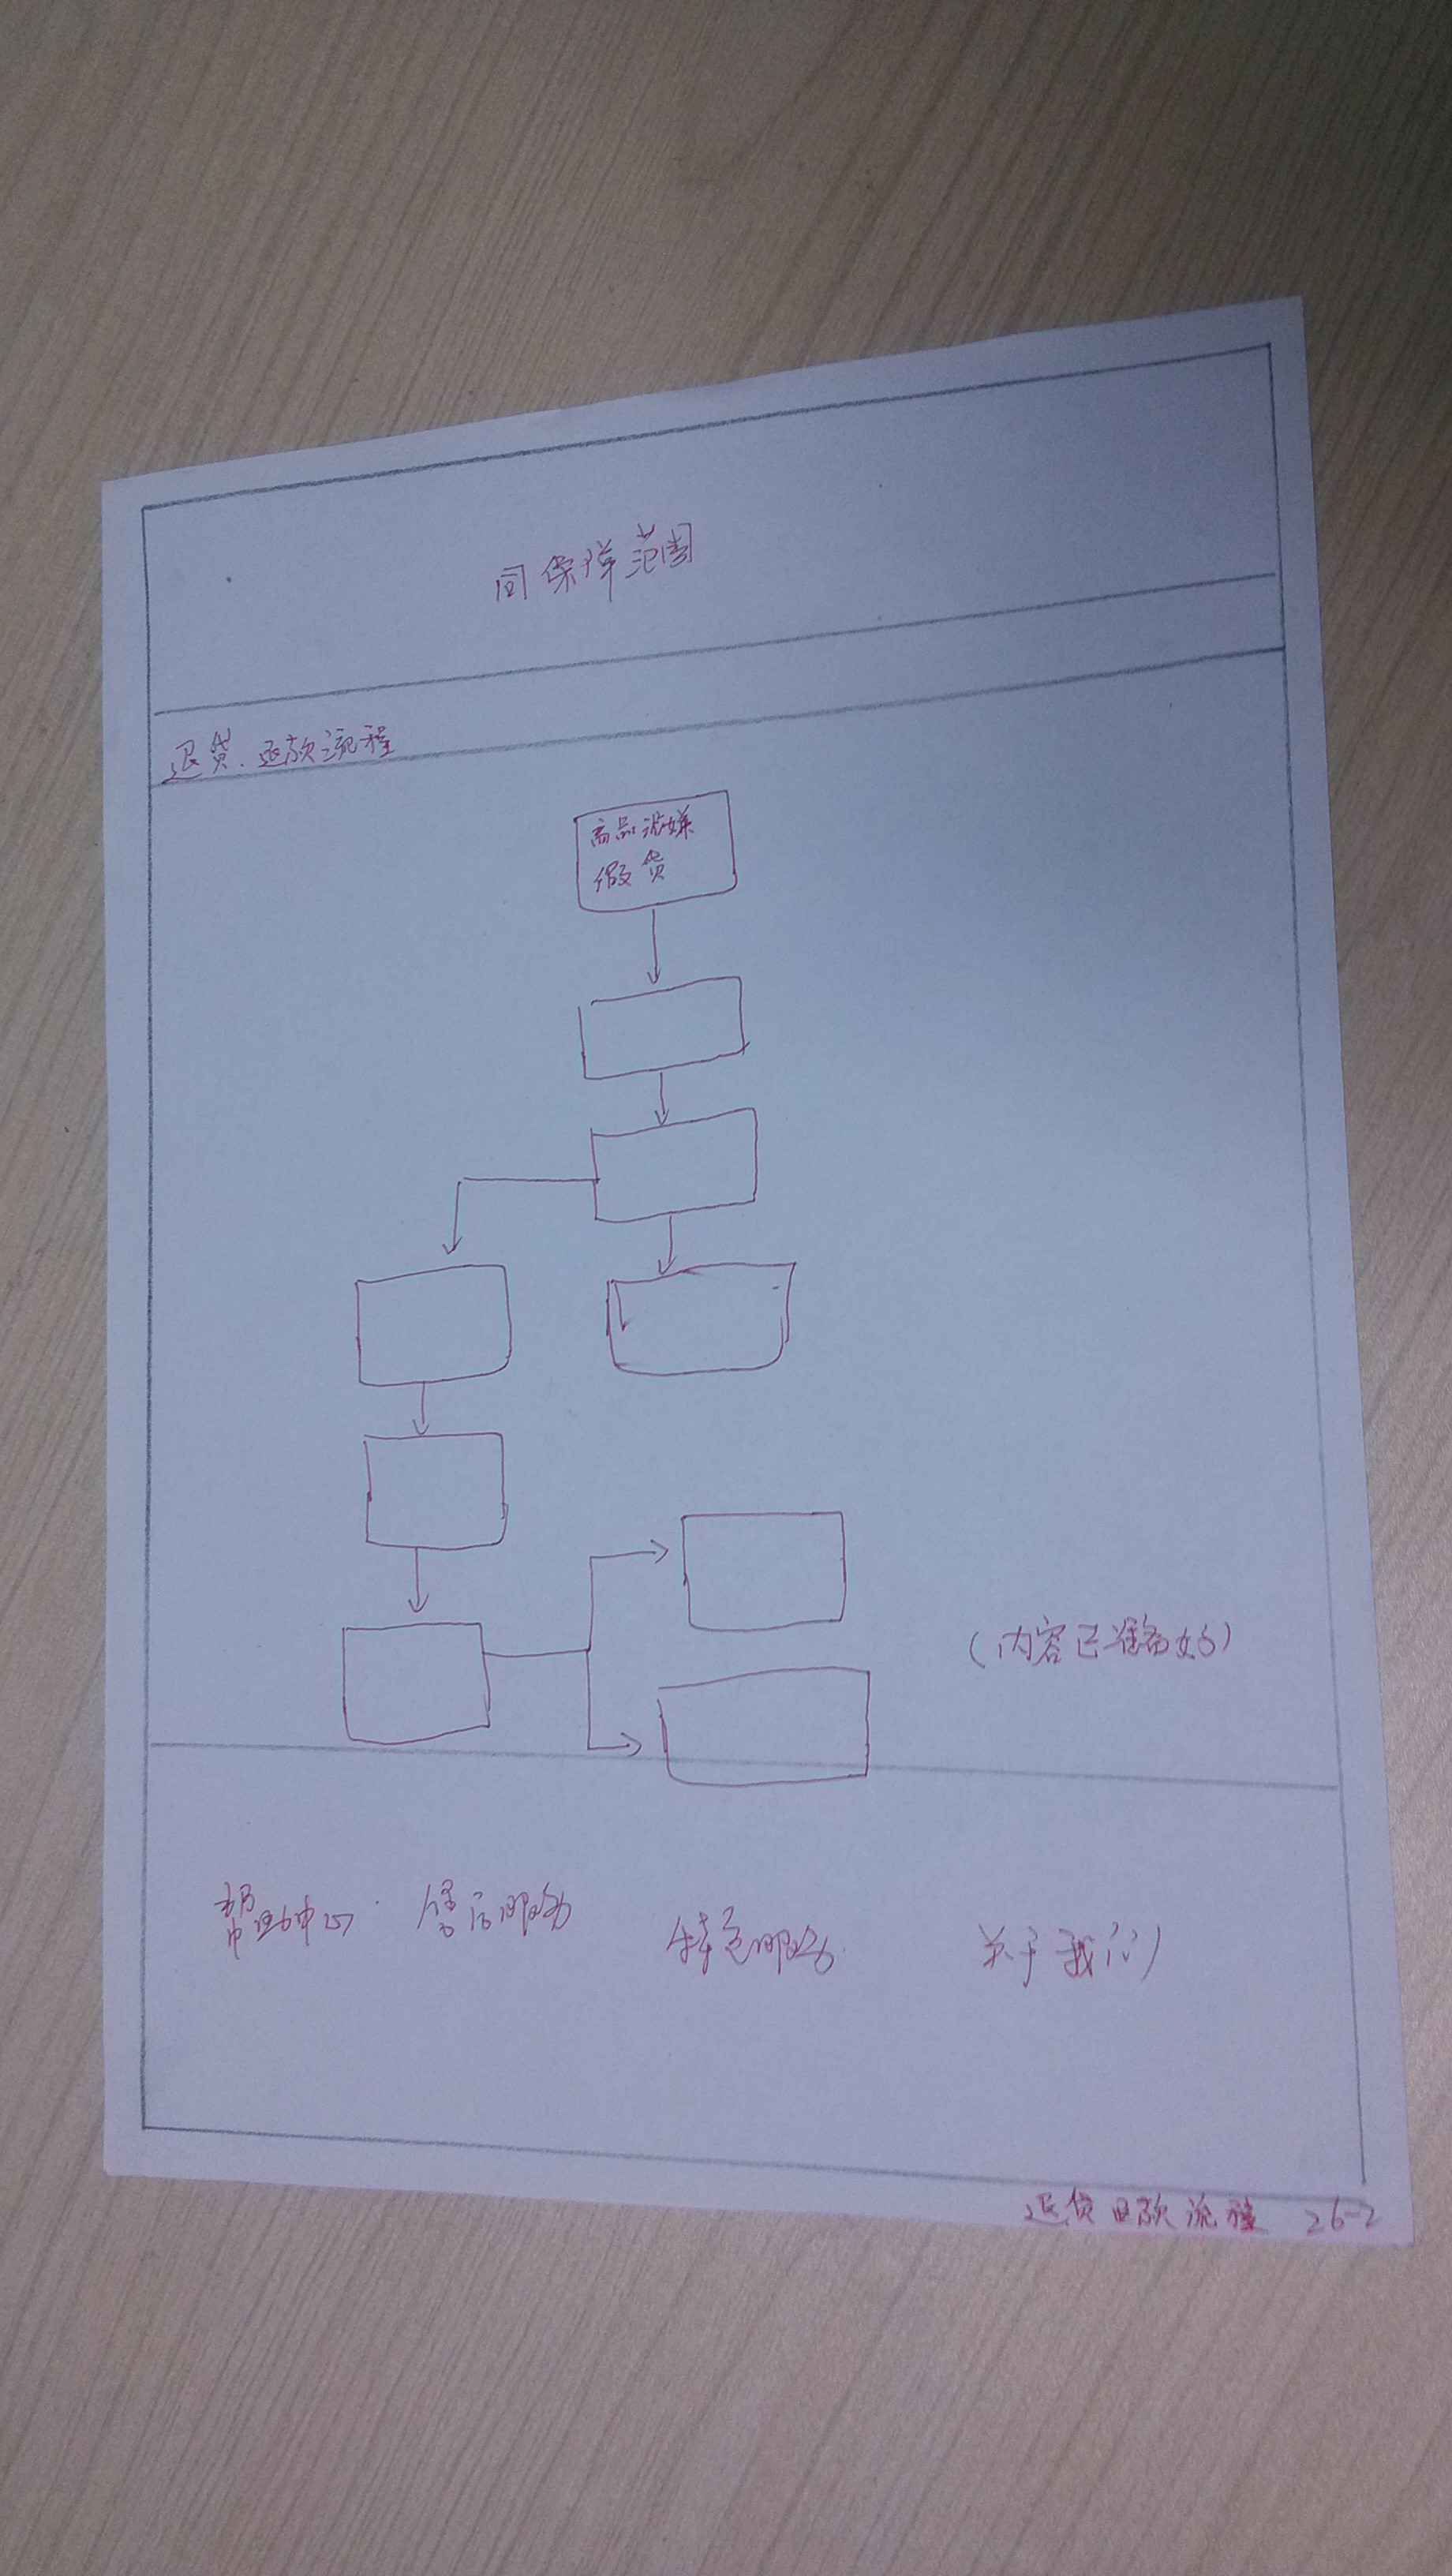 同保障范围
退货.退款流程
商品涉嫌
假货
(内容已准备好)
帮助中心 售后服务 特色服务 关于我们
退货退款流程 26-2